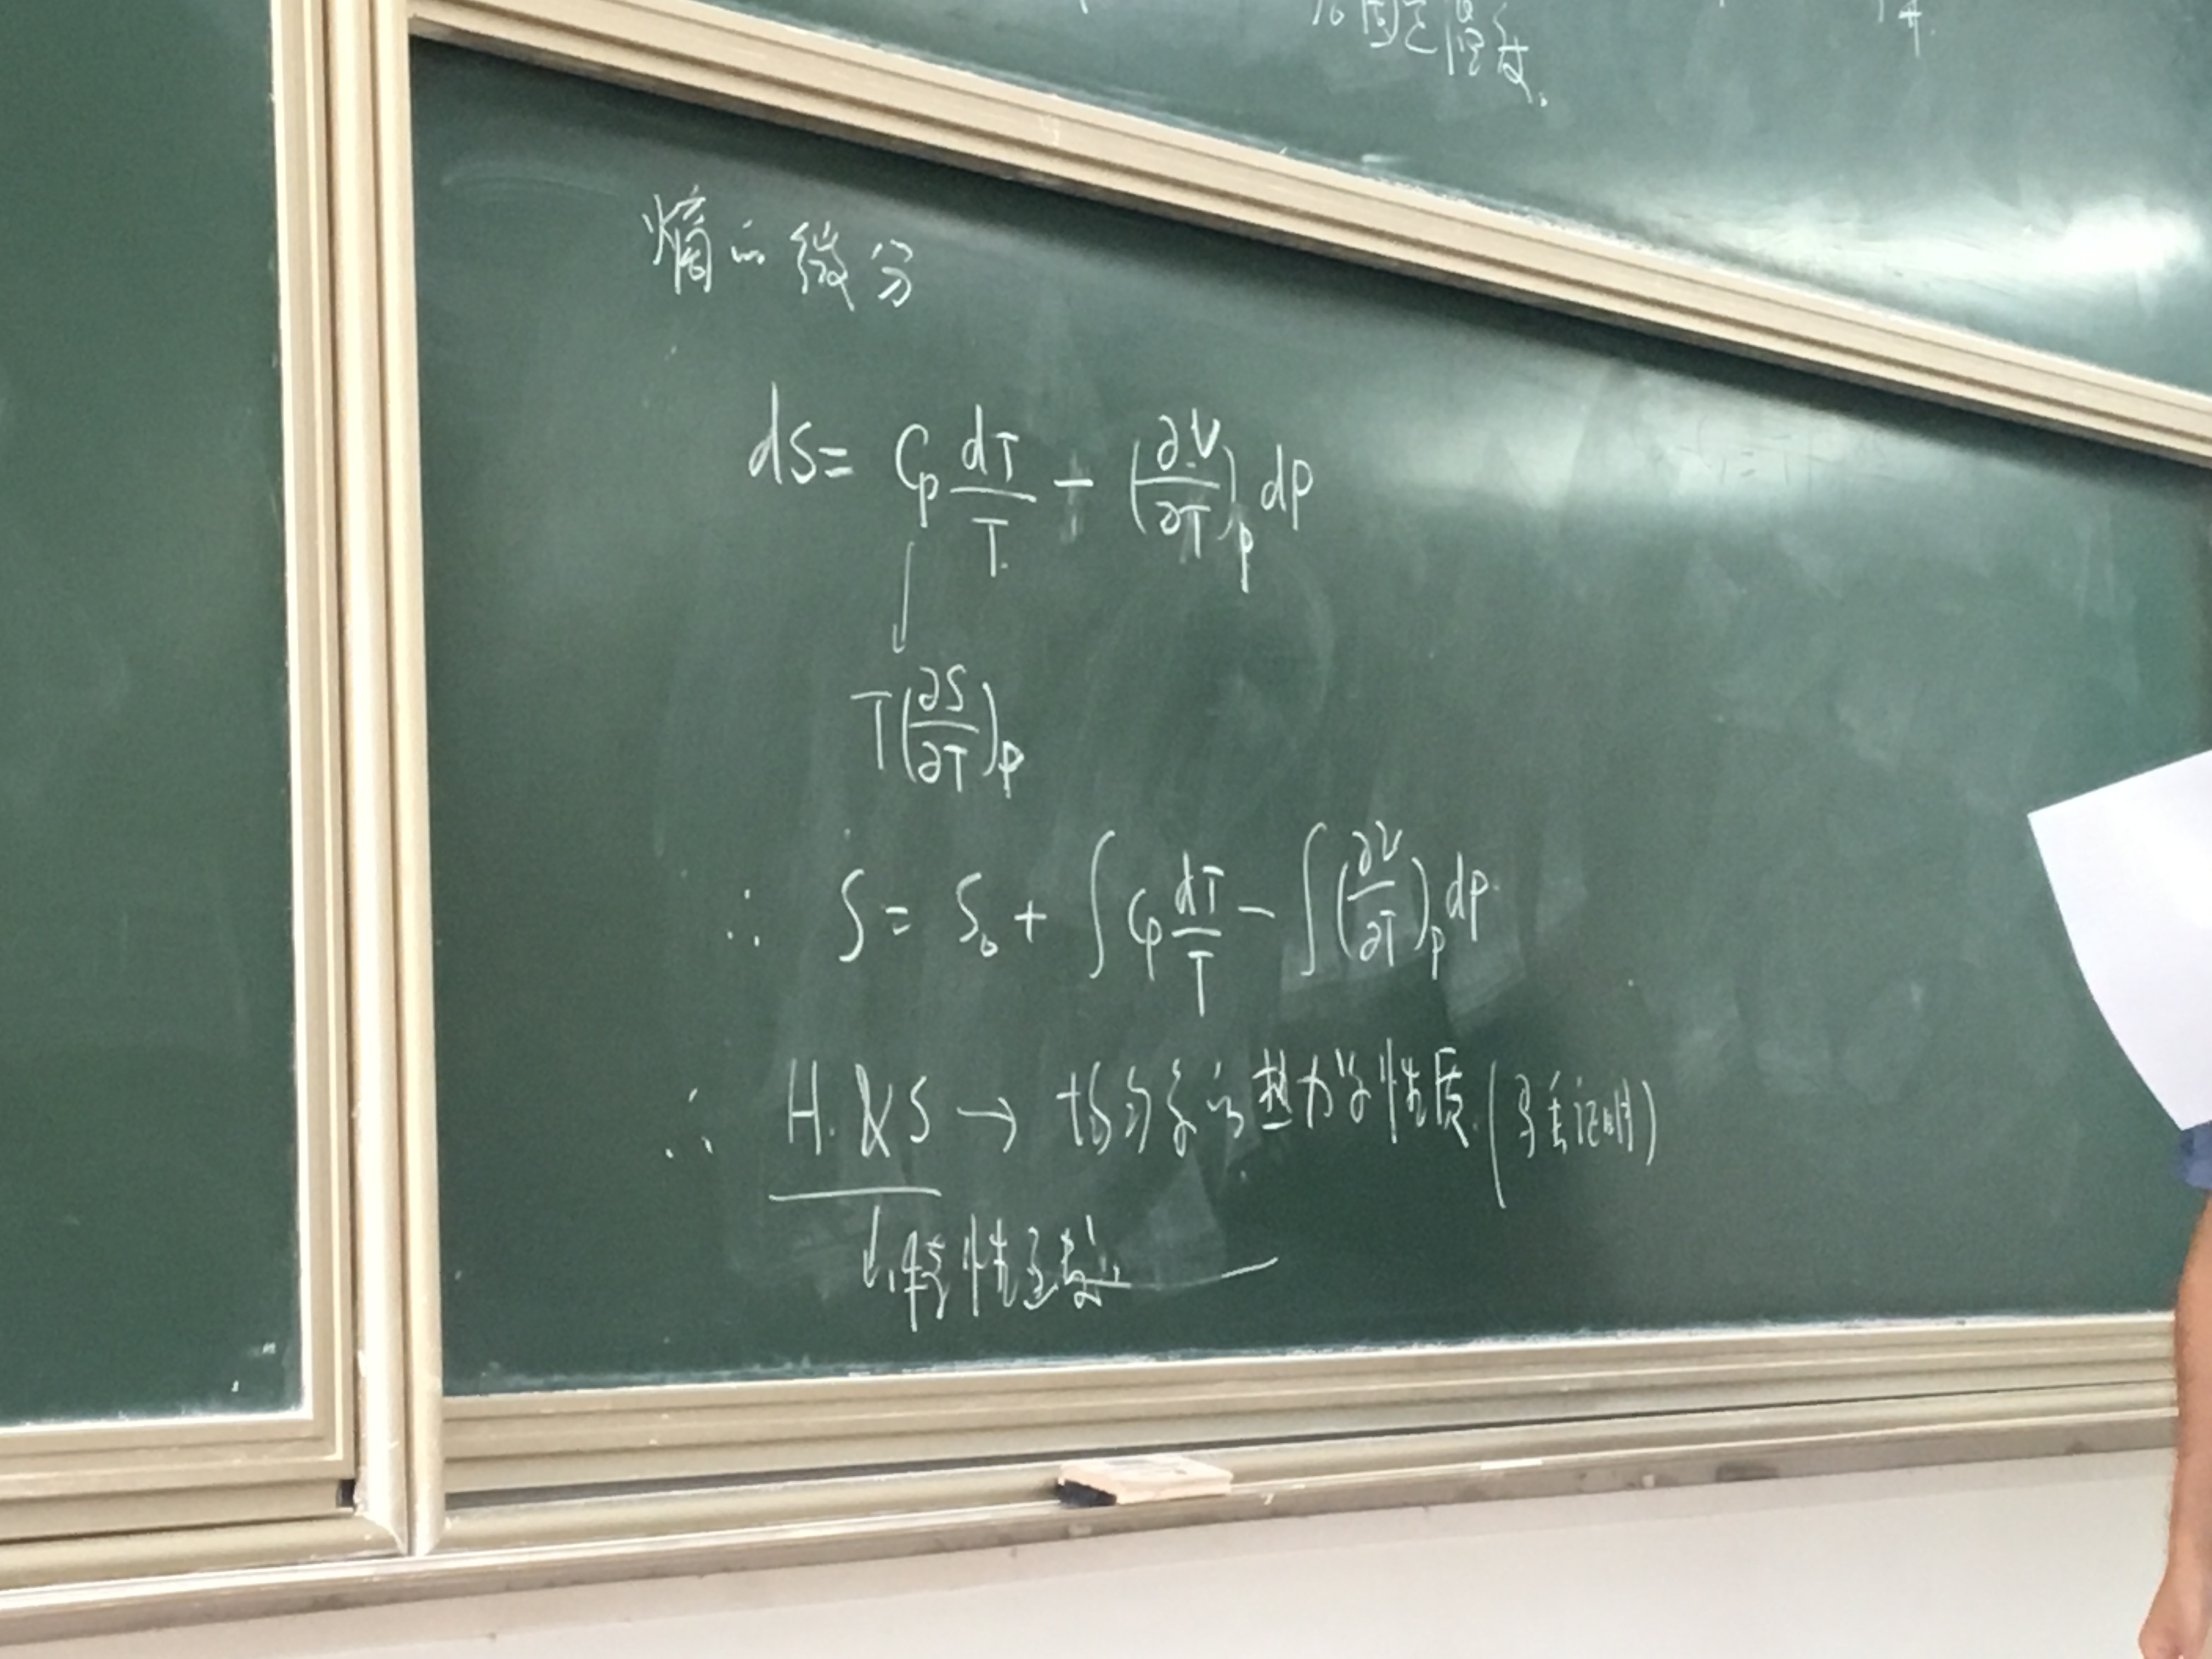 为固定温度.
熵的微分
dS = Cp dT/T - (∂V/∂T)_p dP
↓
T(∂S/∂T)_p
∴ S = S₀ + ∫ Cp dT/T - ∫ (∂V/∂T)_p dP
∴ H. & S → 均匀系的热力学性质. (证明)
↓ 特性函数